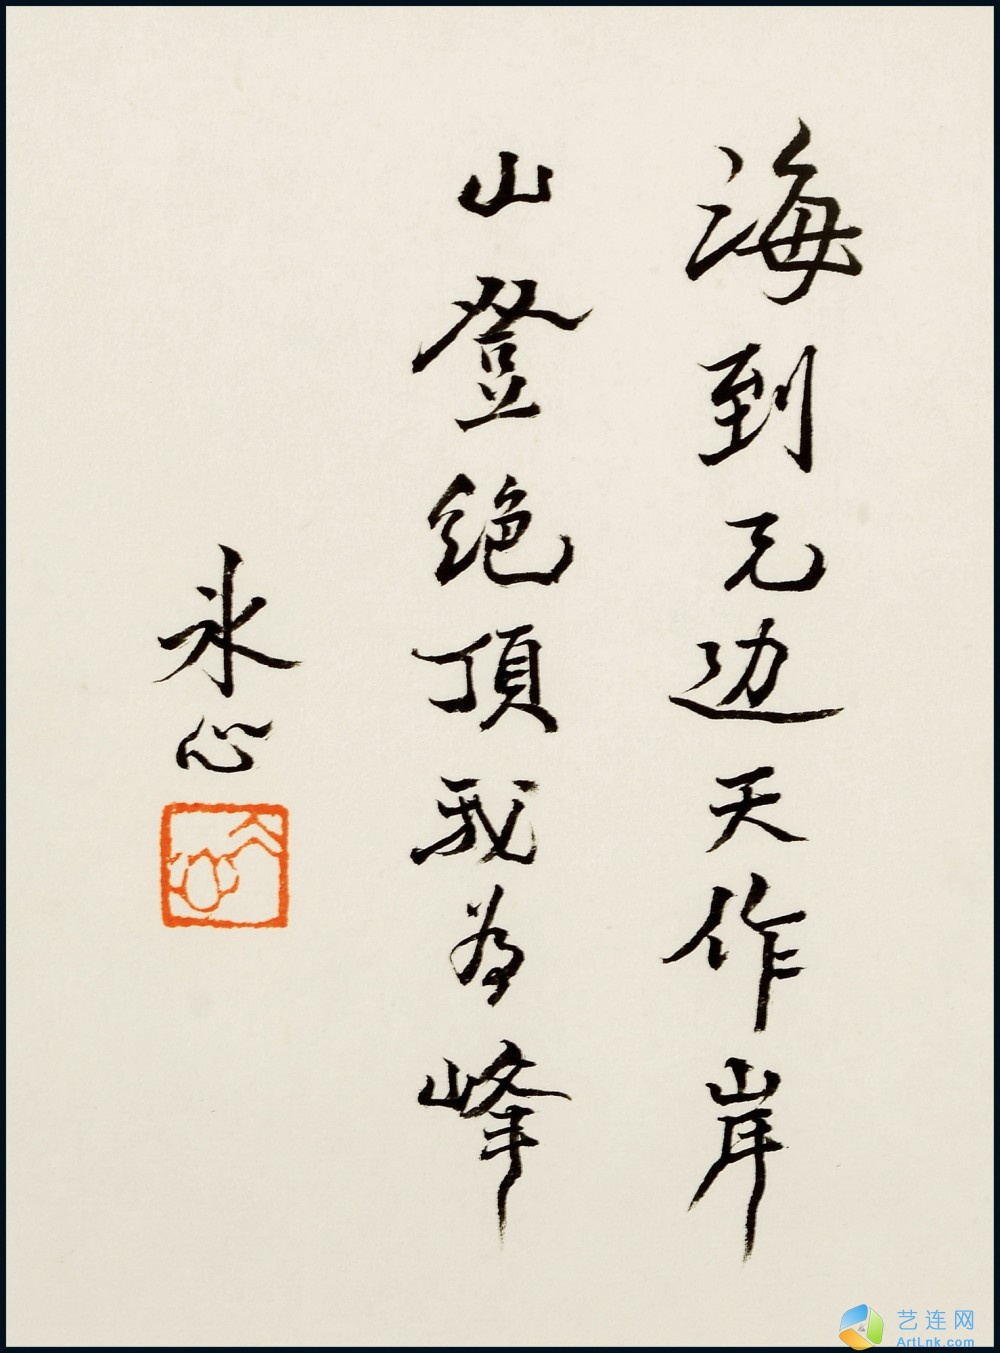 海到无边天作岸
山登绝頂我为峰
冰心
艺连网
ArtLnk.com